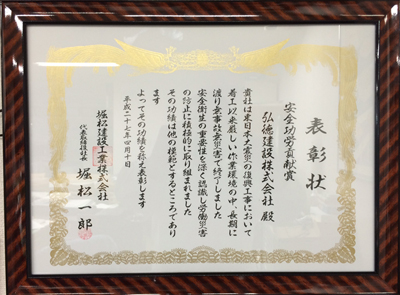 表彰状
安全功労貢献賞
弘徳建設株式会社 殿
貴社は東日本大震災の復興工事において
着工以来厳しい作業環境の中、長期に
渡り無事故無災害で終了しました
安全衛生の重要性を深く認識し労働災害
の防止に積極的に取り組まれました
その功績は他の模範とするところであり
ます
よってその功績を称え表彰します
平成二十七年四月十日
堀松建設工業株式会社
代表取締役社長 堀松一郎